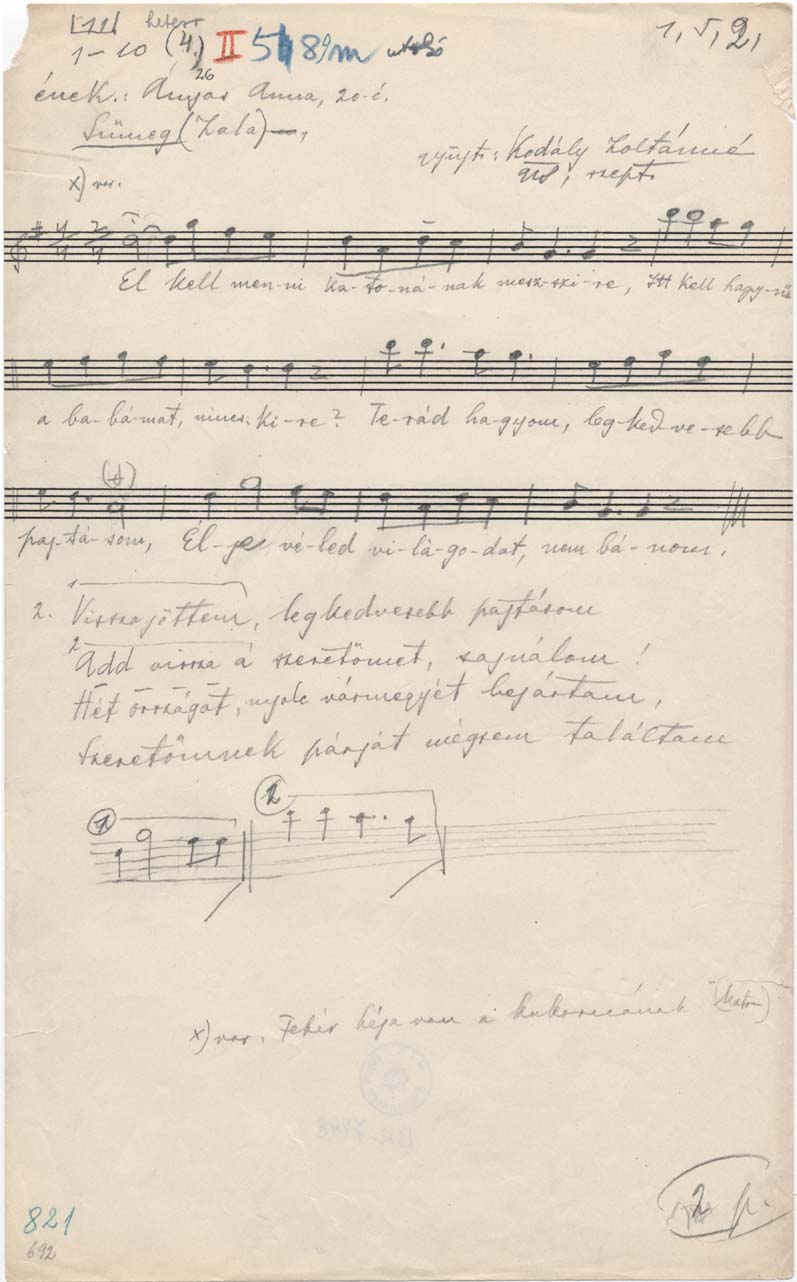 heter
1, 5, 2,
1-10 (4.) II 5
26
ének.: Ányos Anna, 20 é.
Sümeg (Zala)
gyűjt: Kodály Zoltánné
918, szept.
x) var.
El kell men-ni ka-to-ná-nak mesz-szi-re, Itt kell hagy-ni
a ba-bá-mat, nincs: ki-re? Te-rád ha-gyom, leg-ked-ve-sebb
paj-tá-som, Él-je vé-led vi-lá-go-dat, nem bá-nom.
1
2. Visszajöttem, legkedvesebb pajtásom
2
Add vissza a szeretőmet, sajnálom!
Hét országot, nyolc vármegyét bejártam,
Szeretőmnek párját mégsem találtam
1 2
x) var. Fehér héja van a kukoricának (kato)
2 p.
821
692